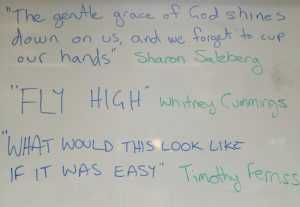 "The gentle grace of God shines
down on us, and we forget to cup
our hands" Sharon Salzberg
"FLY HIGH" Whitney Cummings
"WHAT WOULD THIS LOOK LIKE
IF IT WAS EASY" Timothy Ferriss